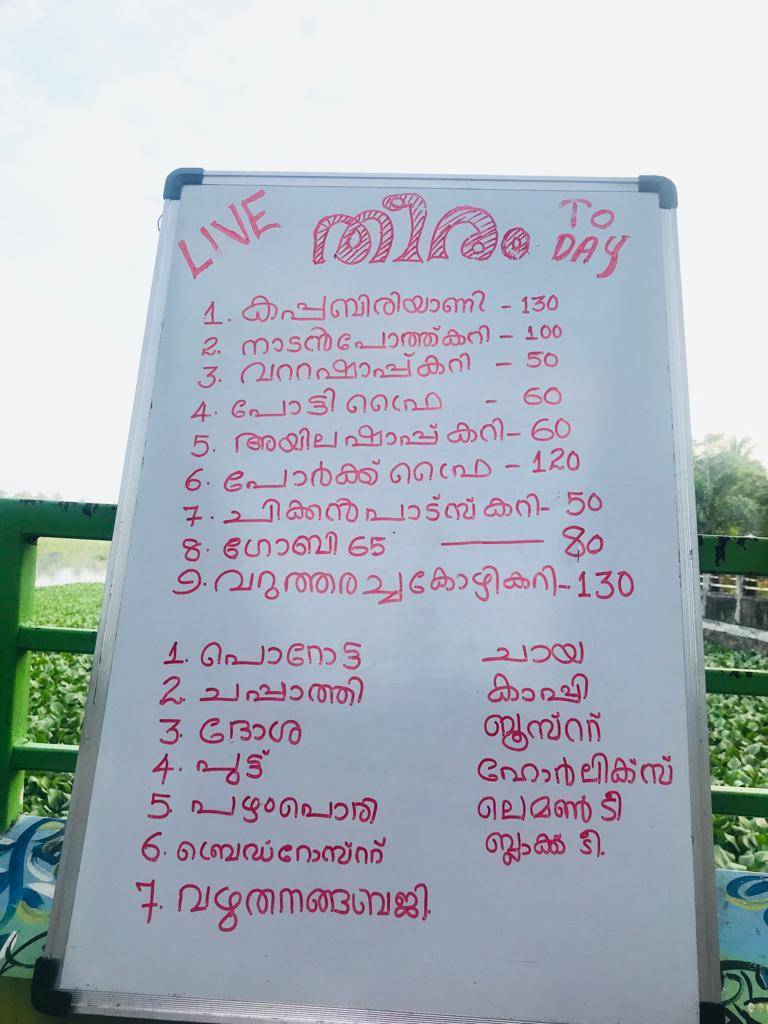 LIVE തീരം TO DAY
1. കപ്പബിരിയാണി - 130
2. നാടൻപോത്ത്കറി - 100
3. വററഷാപ്പ് കറി - 50
4. പോട്ടി ഫ്രൈ - 60
5. അയില ഷാപ്പ് കറി - 60
6. പോർക്ക് ഫ്രൈ - 120
7. ചിക്കൻപാട്സ് കറി - 50
8. ഗോബി 65 — 80
9. വറുത്തരച്ച കോഴികറി - 130
1. പൊറോട്ട ചായ
2. ചപ്പാത്തി കാപ്പി
3. ദോശ ബൂസ്ററ്
4. പുട്ട് ഹോർലിക്സ്
5. പഴംപൊരി ലെമൺ ടീ
6. ബ്രെഡ്റോസ്ററ് ബ്ലാക്ക് ടീ.
7. വഴുതനങ്ങബജി.